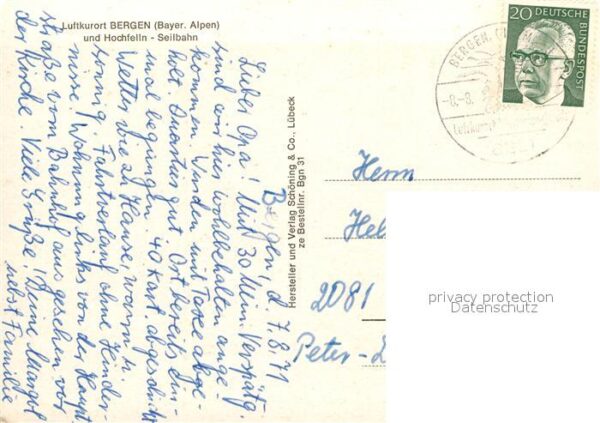 Luftkurort BERGEN (Bayer. Alpen)
und Hochfelln - Seilbahn
Bergen, d. 7.8.71
Lieber Opa! Mit 30 Min. Verspätg.
sind wir hier wohlbehalten ange-
kommen. Wurden mit Taxe abge-
holt. Quartier gut. Ort bereits ein-
mal begingen. 40 Kart. abgeschickt
Wetter wie zu Hause, warm u.
sonnig. Fahrtverlauf ohne Hinder-
nisse! Wohnung links von der Haupt-
straße vom Bahnhof aus gesehen vor
der Kirche. Viele Grüße! Deine Margot
nebst Familie
Hersteller und Verlag Schöning & Co., Lübeck
ze Bestellnr. Bgn 31
20 DEUTSCHE
BUNDESPOST
BERGEN
-8.-8.
Herrn
Hel
2081
Peter-
privacy protection
Datenschutz